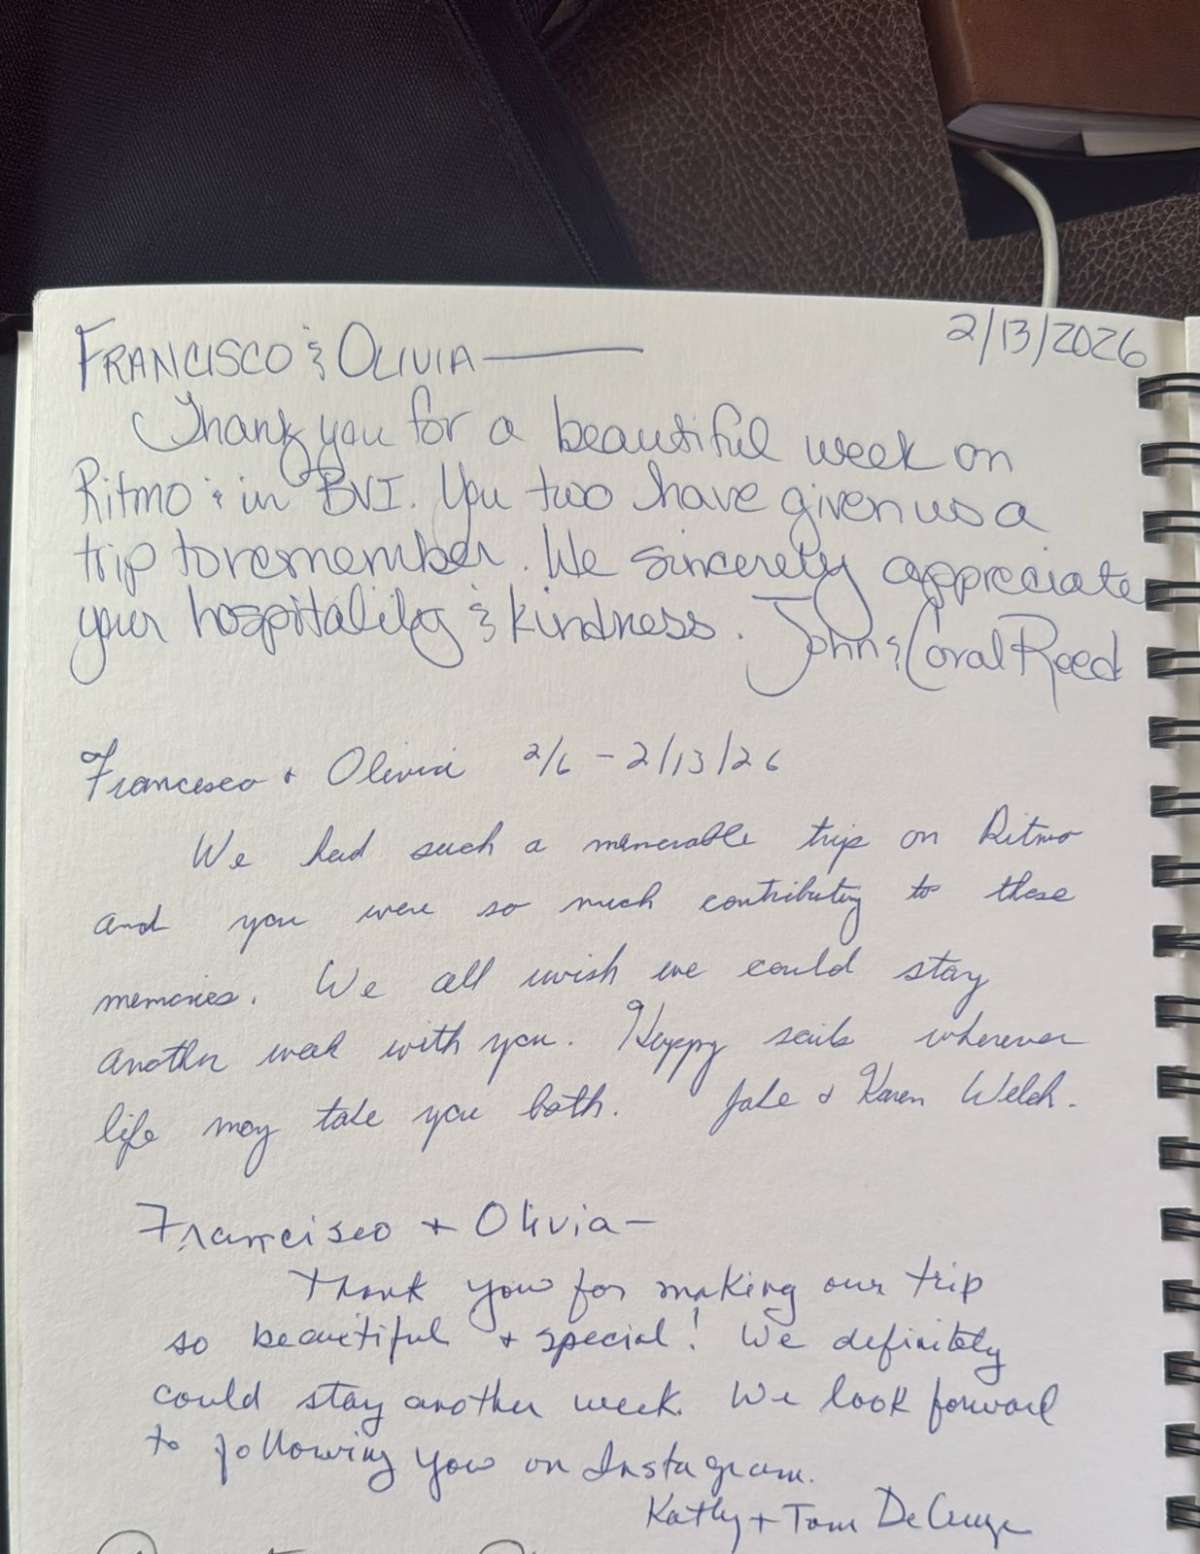 FRANCISCO & OLIVIA —
2/13/2026
Thank you for a beautiful week on
Ritmo & in BVI. You two have given us a
trip to remember. We sincerely appreciate
your hospitality & kindness. John & Coral Reed
Francesco + Olivia 2/6 - 2/13/26
We had such a memorable trip on Ritmo
and you were so much contributing to these
memories. We all wish we could stay
another week with you. Happy sails wherever
life may take you both. Jake & Karen Welch.
Francisco + Olivia —
Thank you for making our trip
so beautiful + special! We definitely
could stay another week. We look forward
to following you on Instagram.
Kathy + Tom